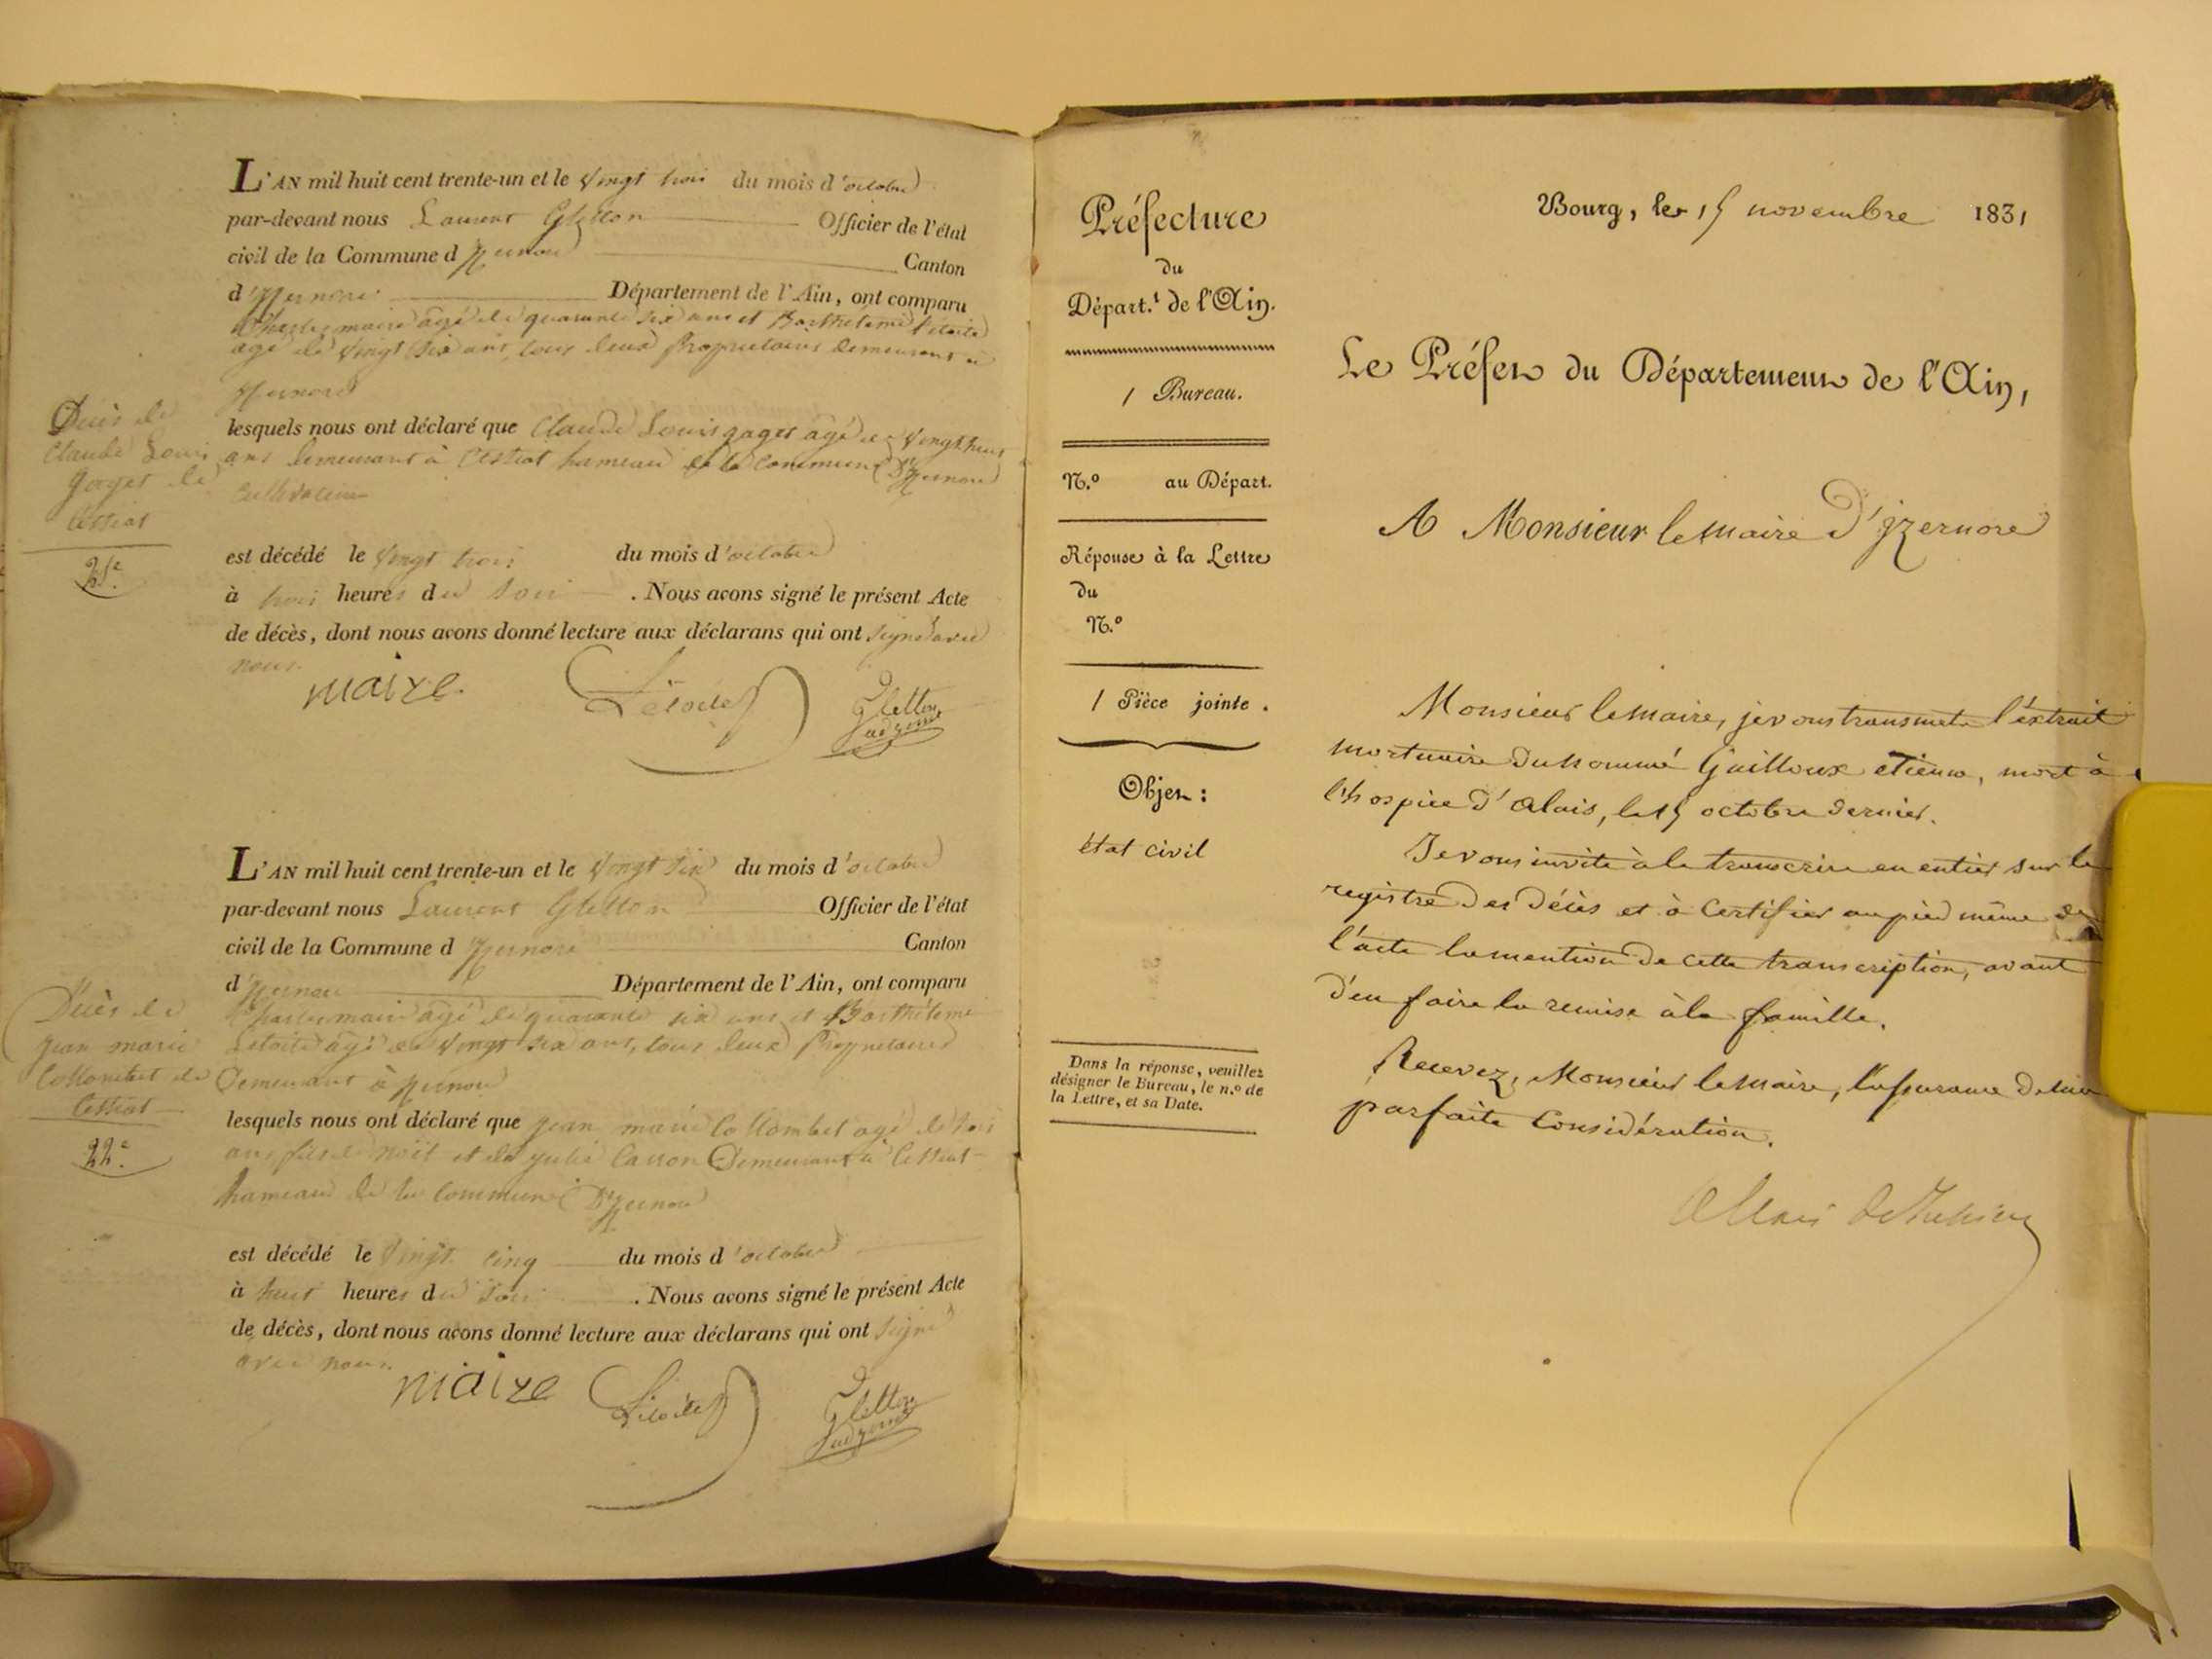 L'AN mil huit cent trente-un et le vingt trois du mois d'octobre
par-devant nous Laurent Gletton Officier de l'état
civil de la Commune d'Izernore Canton
d'Izernore Département de l'Ain, ont comparu
Charles maire âgé de quarante six ans et Barthelemi Létoile
agé de vingt six ans, tous deux propriétaires demeurant à
Izernore
Décès de
Claude Louis
gaget de
Cessiat
21e
lesquels nous ont déclaré que Claude Louis gaget agé de vingt huit
ans demeurant à Cessiat hameau de la Commune D'Izernore
Cultivateur
est décédé le vingt trois du mois d'octobre
à trois heures du Soir . Nous avons signé le présent Acte
de décès, dont nous avons donné lecture aux déclarans qui ont signé avec
nous.
maire Létoile Gletton
adjoint
L'AN mil huit cent trente-un et le vingt six du mois d'octobre
par-devant nous Laurent Gletton Officier de l'état
civil de la Commune d Izernore Canton
d'Izernore Département de l'Ain, ont comparu
Charles maire âgé de quarante six ans et Barthélemi
Letoile âgé de vingt six ans, tous deux Propriétaires
Demeurant à Izernore
Décès de
jean marie
Collombet de
Cessiat
22e
lesquels nous ont déclaré que jean marie Collombet agé de trois
ans fils de noël et de julie Carron Demeurant à Cessiat
hameau de la Commune D'Izernore
est décédé le vingt cinq du mois d'octobre
à huit heures du Soir . Nous avons signé le présent Acte
de décès, dont nous avons donné lecture aux déclarans qui ont signé
avec nous.
maire Létoile Gletton
adjoint
Préfecture
du
Départ.t de l'Ain.
1 Bureau.
N.o au Départ.
Réponse à la Lettre
du
N.o
1 Pièce jointe.
Objet :
état civil
Dans la réponse, veuillez
désigner le Bureau, le n.o de
la Lettre, et sa Date.
Bourg, le 15 novembre 1831
Le Préfet du Département de l'Ain,
A Monsieur le maire D'jzernore
Monsieur le Maire, je vous transmets l'extrait
mortuaire du nommé Guilloux etienne, mort à
l'hospice d'alais, le 15 octobre dernier.
Je vous invite à le transcrire en entier sur le
registre des décès et à certifier au pied même de
l'acte la mention de cette transcription, avant
d'en faire la remise à la famille.
Recevez, Monsieur le Maire, l'assurance de ma
parfaite Considération.